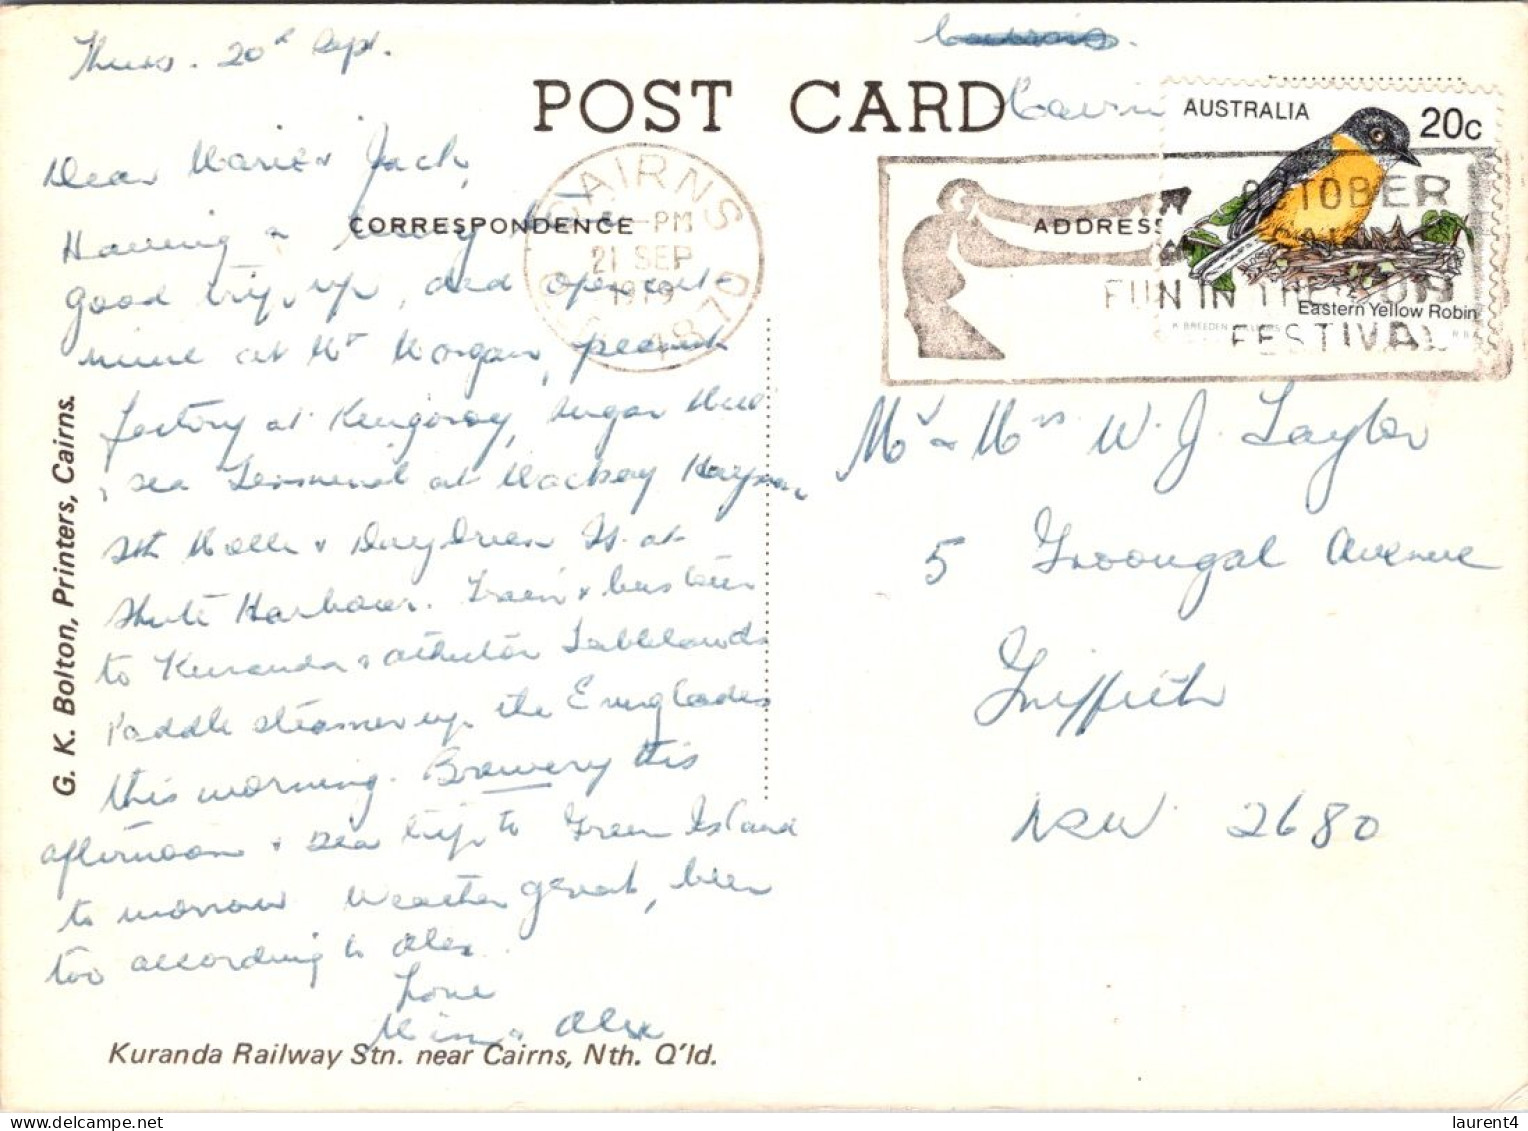 Thurs. 20th Sept.
Cairns.
POST CARD
Cairn
AUSTRALIA
20c
Eastern Yellow Robin
CAIRNS
PM
21 SEP
1979
QLD 4870
OCTOBER
FUN IN THE SUN
FESTIVAL
CORRESPONDENCE
ADDRESS
Dear Marie & Jack,
Having a lovely
good trip up, and open cut
mine at Mt Morgan, peanut
factory at Kingaroy, sugar Mill
& sea Terminal at Mackay Hayman
Sth Molle & Daydream Is. at
Shute Harbour. Train & bus tour
to Kuranda & atherton Tablelands
Paddle steamer up the Everglades
this morning. Brewery this
afternoon & sea trip to Green Island
to morrow Weather great, beer
too according to Alex.
Love
& Alex
Mr & Mrs W. J. Taylor
5 Groongal Avenue
Griffith
NSW 2680
G. K. Bolton, Printers, Cairns.
Kuranda Railway Stn. near Cairns, Nth. Q'ld.
www.delcampe.net
laurent4